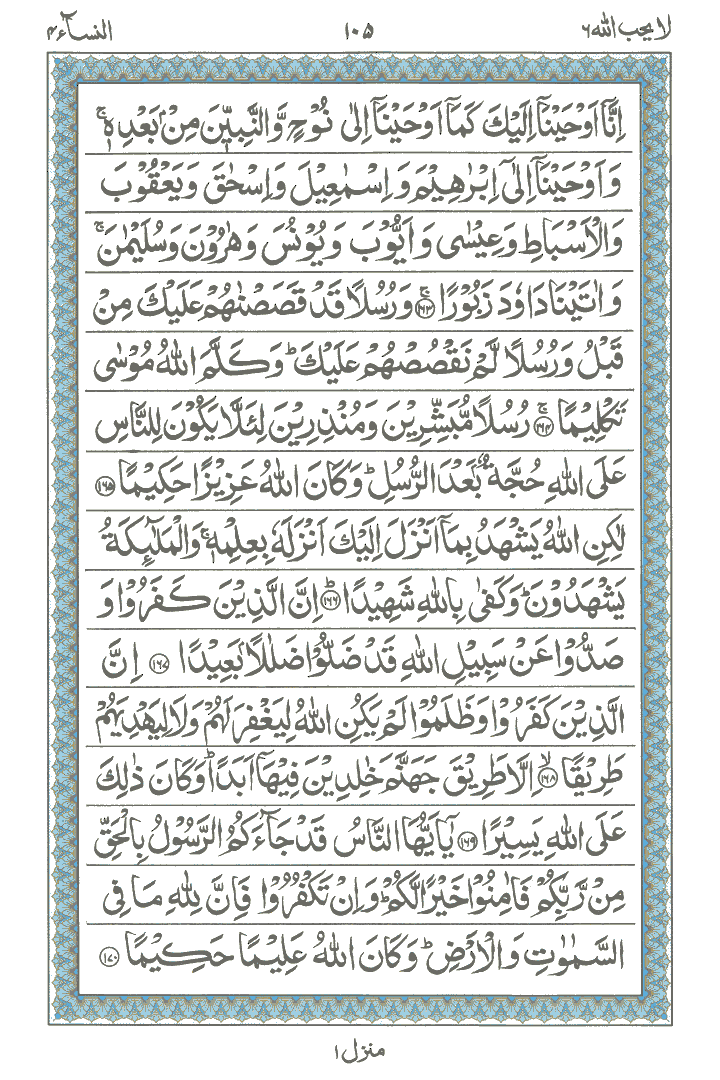 لا يحب الله ٦ ١٠٥ النسآء ٤
اِنَّآ اَوْحَيْنَآ اِلَيْكَ كَمَآ اَوْحَيْنَآ اِلٰى نُوْحٍ وَّالنَّبِيّٖنَ مِنْۢ بَعْدِهٖ ۚ
وَ اَوْحَيْنَآ اِلٰٓى اِبْرٰهِيْمَ وَ اِسْمٰعِيْلَ وَ اِسْحٰقَ وَ يَعْقُوْبَ
وَالْاَسْبَاطِ وَ عِيْسٰى وَ اَيُّوْبَ وَ يُوْنُسَ وَ هٰرُوْنَ وَ سُلَيْمٰنَ ۚ
وَ اٰتَيْنَا دَاوٗدَ زَبُوْرًا ۚ ﴿١٦٣﴾ وَ رُسُلًا قَدْ قَصَصْنٰهُمْ عَلَيْكَ مِنْ
قَبْلُ وَ رُسُلًا لَّمْ نَقْصُصْهُمْ عَلَيْكَ ؕ وَ كَلَّمَ اللّٰهُ مُوْسٰى
تَكْلِيْمًا ۚ ﴿١٦٤﴾ رُسُلًا مُّبَشِّرِيْنَ وَ مُنْذِرِيْنَ لِئَلَّا يَكُوْنَ لِلنَّاسِ
عَلَى اللّٰهِ حُجَّةٌۢ بَعْدَ الرُّسُلِ ؕ وَ كَانَ اللّٰهُ عَزِيْزًا حَكِيْمًا ﴿١٦٥﴾
لٰكِنِ اللّٰهُ يَشْهَدُ بِمَآ اَنْزَلَ اِلَيْكَ اَنْزَلَهٗ بِعِلْمِهٖ ۚ وَالْمَلٰٓئِكَةُ
يَشْهَدُوْنَ ؕ وَ كَفٰى بِاللّٰهِ شَهِيْدًا ؕ ﴿١٦٦﴾ اِنَّ الَّذِيْنَ كَفَرُوْا وَ
صَدُّوْا عَنْ سَبِيْلِ اللّٰهِ قَدْ ضَلُّوْا ضَلٰلًۢا بَعِيْدًا ﴿١٦٧﴾ اِنَّ
الَّذِيْنَ كَفَرُوْا وَ ظَلَمُوْا لَمْ يَكُنِ اللّٰهُ لِيَغْفِرَ لَهُمْ وَ لَا لِيَهْدِيَهُمْ
طَرِيْقًا ۙ ﴿١٦٨﴾ اِلَّا طَرِيْقَ جَهَنَّمَ خٰلِدِيْنَ فِيْهَآ اَبَدًا ؕ وَ كَانَ ذٰلِكَ
عَلَى اللّٰهِ يَسِيْرًا ﴿١٦٩﴾ يٰٓاَيُّهَا النَّاسُ قَدْ جَآءَكُمُ الرَّسُوْلُ بِالْحَقِّ
مِنْ رَّبِّكُمْ فَاٰمِنُوْا خَيْرًا لَّكُمْ ؕ وَ اِنْ تَكْفُرُوْا فَاِنَّ لِلّٰهِ مَا فِى
السَّمٰوٰتِ وَ الْاَرْضِ ؕ وَ كَانَ اللّٰهُ عَلِيْمًا حَكِيْمًا ﴿١٧٠﴾
منزل ١